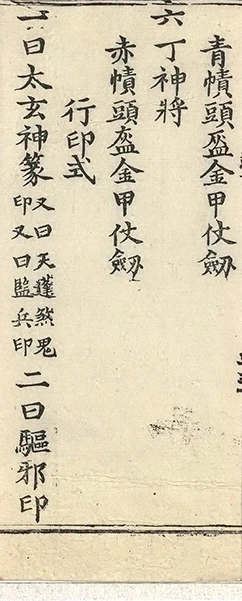 青幘頭盔金甲仗劒
六丁神將
赤幘頭盔金甲仗劒
行印式
一曰太玄神篆又曰天蓬煞鬼印又曰監兵印二曰驅邪印